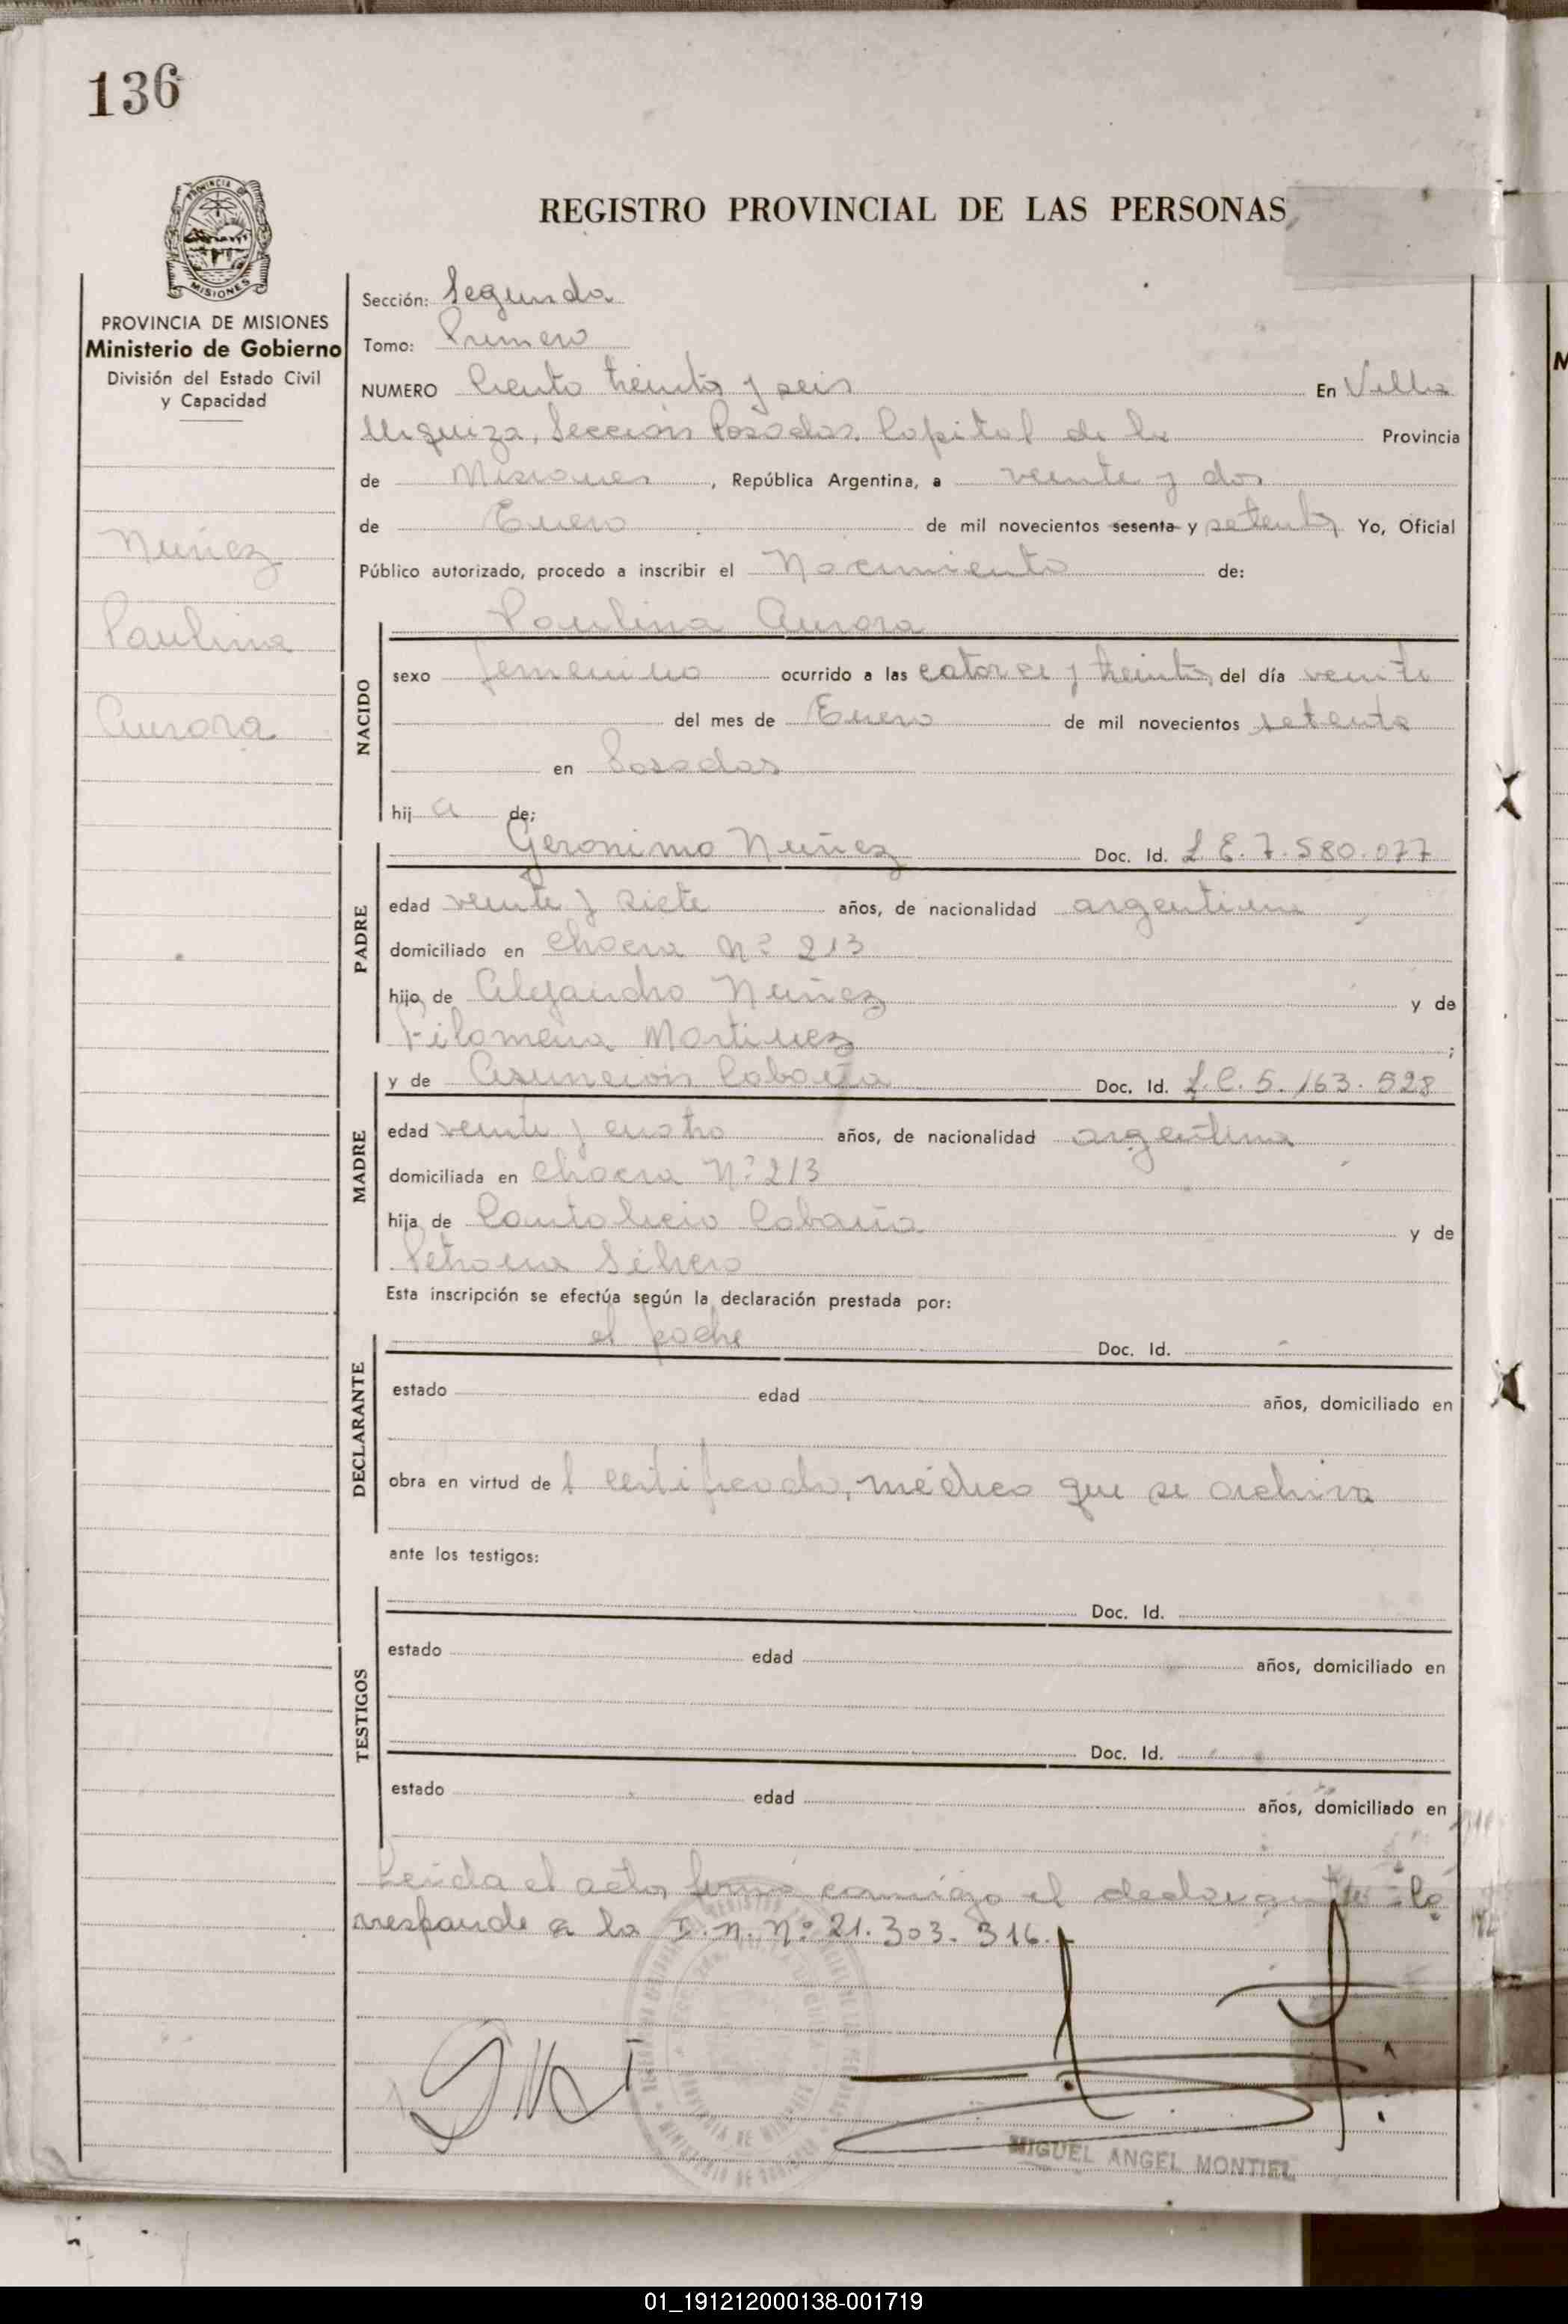 136
REGISTRO PROVINCIAL DE LAS PERSONAS
PROVINCIA DE MISIONES
Ministerio de Gobierno
División del Estado Civil
y Capacidad
Nuñez
Paulina
Aurora
Sección: Segunda
Tomo: Primero
NUMERO Ciento treinta y seis En Villa
Urquiza, Sección Posadas, Capital de la Provincia
de Misiones, República Argentina, a veinte y dos
de Enero de mil novecientos sesenta y setenta, Yo, Oficial
Público autorizado, procedo a inscribir el Nacimiento de:
NACIDO
Paulina Aurora
sexo femenino ocurrido a las catorce y treinta, del día veinte
del mes de Enero de mil novecientos setenta
en Posadas
hij a de:
PADRE
Geronimo Nuñez Doc. Id. L.E. 7.580.077
edad veinte y siete años, de nacionalidad argentina
domiciliado en chacra Nº 213
hijo de Alejandro Nuñez y de
Filomena Martinez ;
MADRE
y de Asunción Cabaña Doc. Id. L.C. 5.163.528
edad veinte y cuatro años, de nacionalidad argentina
domiciliada en chacra Nº 213
hija de Cantalicio Cabaña y de
Petrona
Esta inscripción se efectúa según la declaración prestada por:
DECLARANTE
el padre Doc. Id.
estado edad años, domiciliado en
obra en virtud de l certificado, médico que se archiva
ante los testigos:
TESTIGOS
Doc. Id.
estado edad años, domiciliado en
Doc. Id.
estado edad años, domiciliado en
Leida el acta, firma conmigo el declarante. Co
rresponde a la D.N. Nº 21.303.316.
MIGUEL ANGEL MONTIEL
01_191212000138-001719